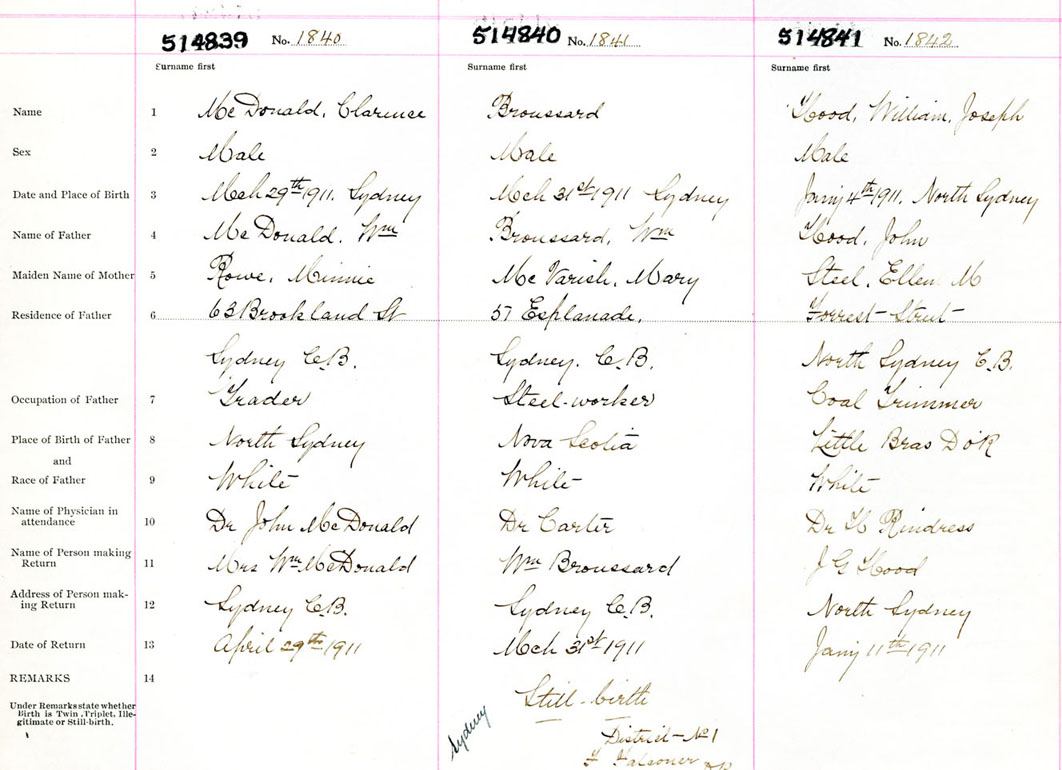 514839 No. 1840 514840 No. 1841 514841 No. 1842
Surname first Surname first Surname first
Name 1 McDonald, Clarence Broussard Hood, William, Joseph
Sex 2 Male Male Male
Date and Place of Birth 3 Mch 29th 1911, Sydney Mch 31st 1911 Sydney Jany 4th 1911, North Sydney
Name of Father 4 McDonald, Wm Broussard, Wm Hood, John
Maiden Name of Mother 5 Rowe, Minnie Mc Varish, Mary Steel, Ellen M
Residence of Father 6 63 Brookland St 57 Esplanade, Forrest Street
Sydney C.B. Sydney. C.B. North Sydney C.B.
Occupation of Father 7 Trader Steel-worker Coal Trimmer
Place of Birth of Father 8 North Sydney Nova Scotia Little Bras D'oR
and
Race of Father 9 White White White
Name of Physician in
attendance 10 Dr John McDonald Dr Carter Dr H Rindress
Name of Person making
Return 11 Mrs Wm McDonald Wm Broussard J G Hood
Address of Person mak-
ing Return 12 Sydney C.B. Sydney C.B. North Sydney
Date of Return 13 April 29th 1911 Mch 31st 1911 Jany 11th 1911
REMARKS 14
Still-birth
Under Remarks state whether
Birth is Twin, Triplet, Ille-
gitimate or Still-birth.
Sydney
District No 1
F Falconer